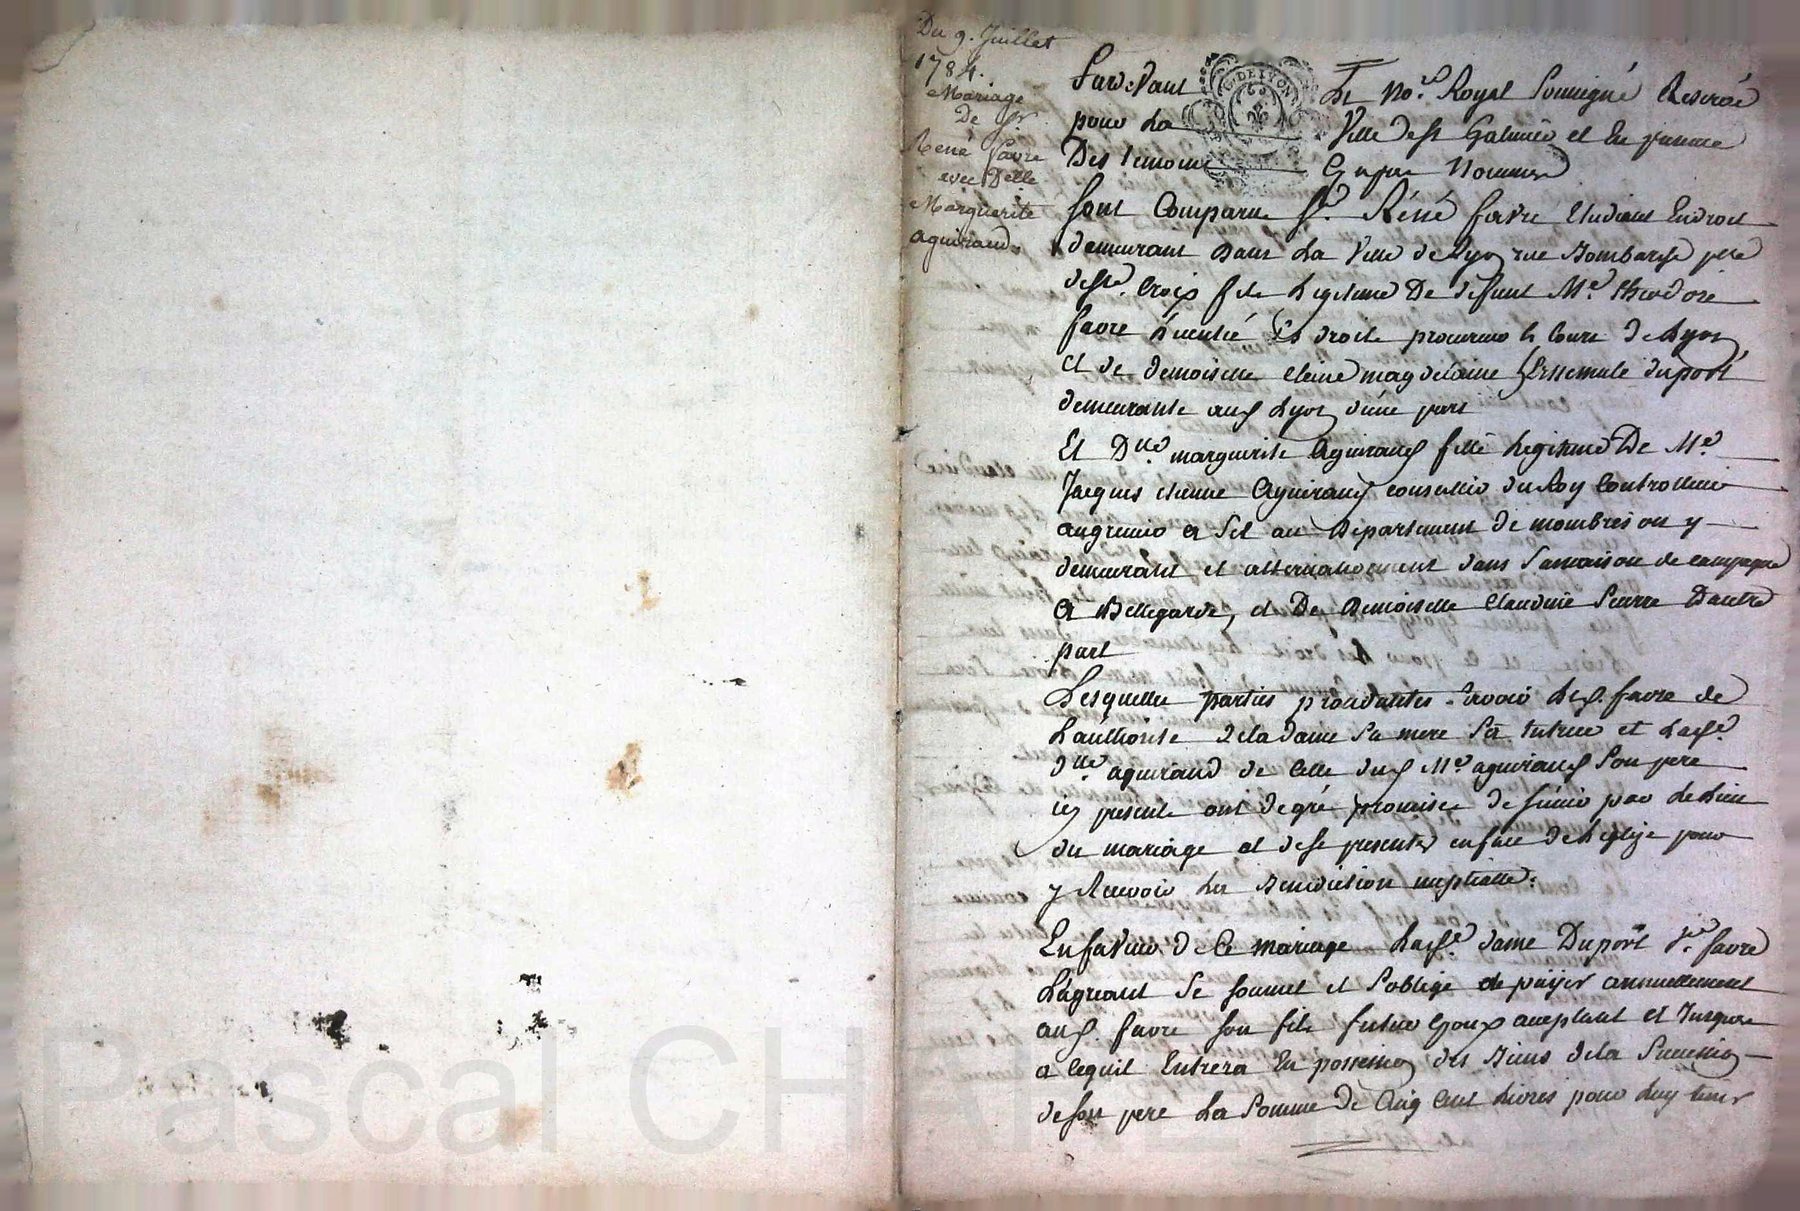 Du 9. Juillet
1784.
Mariage
De Sr
René Favre
avec Delle
Marguerite
aguiraud
Pardevant Le No.re Royal Soussigné Reservé
pour La Ville de St Galmier et En presence
Des temoins Cy apres Nommés
G. DE LYON
Sont Comparu Sr. Réné favre Etudiant En droit
demeurant Dans La Ville de Lyon rue
de Ste. Croix fils Legitime De defunt Me. theodore
favre Licentié Es droits procureur Es Cours de Lyon
Et de demoiselle magdelaine duport
demeurante aud Lyon d'une part
Et Dlle marguerite Aguiraud fille Legitime De Me
Jacques etienne Aguiraud conseiller du Roy Controlleur
au grenier a Sel au Departement de mombrison y
demeurant et alternativement dans Sa maison de campagne
a Bellegarde, et De Demoiselle Claudine Pierre D'autre
part
Lesquelles parties procedantes Scavoir Led. favre de
L'authorité de la dame Sa mere Sa tutrice et Lad.
dlle aguiraud de Celle dud Me aguiraud Son pere
icy presents ont de gré promis de S'unir par Le Lien
du mariage et de se presenter en face de L'eglise pour
y Recevoir La Benediction nuptialle.
En faveur de Ce mariage Lad. dame Duport favre
L'agreant Se Soumet et S'oblige de païer annuellement
aud. favre Son fils futur Epoux acceptant et Jusques
a Ce quil Entrera En possession des Biens de la Succession
de Son pere La Somme de Cinq Cent Livres pour Luy tenir
Pascal CH